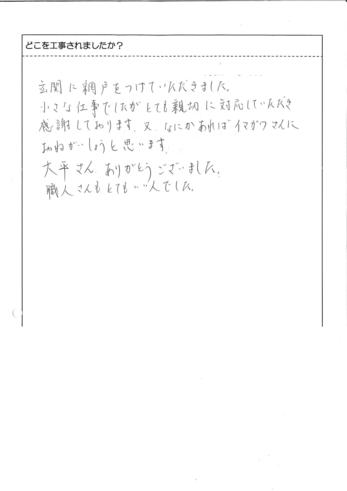 どこを工事されましたか？
玄関に網戸をつけていただきました。
小さな仕事でしたがとても親切に対応していただき
感謝しております。又、なにかあればイマガワさんに
おねがいしようと思います。
大平さん ありがとうございました。
職人さんもとてもいい人でした。